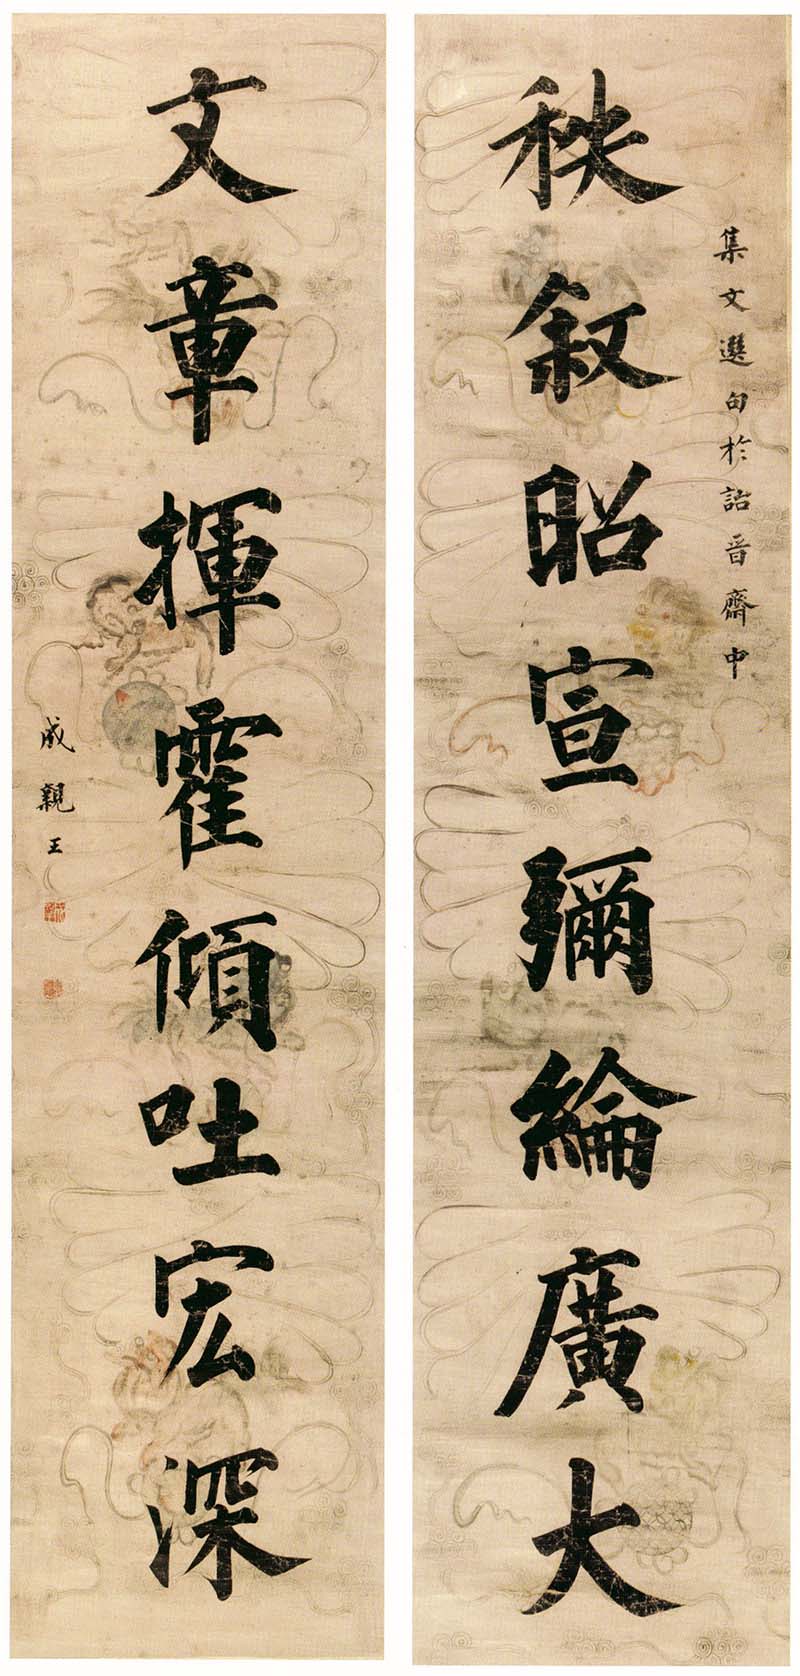 集文選句於詒晉齋中
秩叙昭宣彌綸廣大
文章揮霍傾吐宏深
成親王